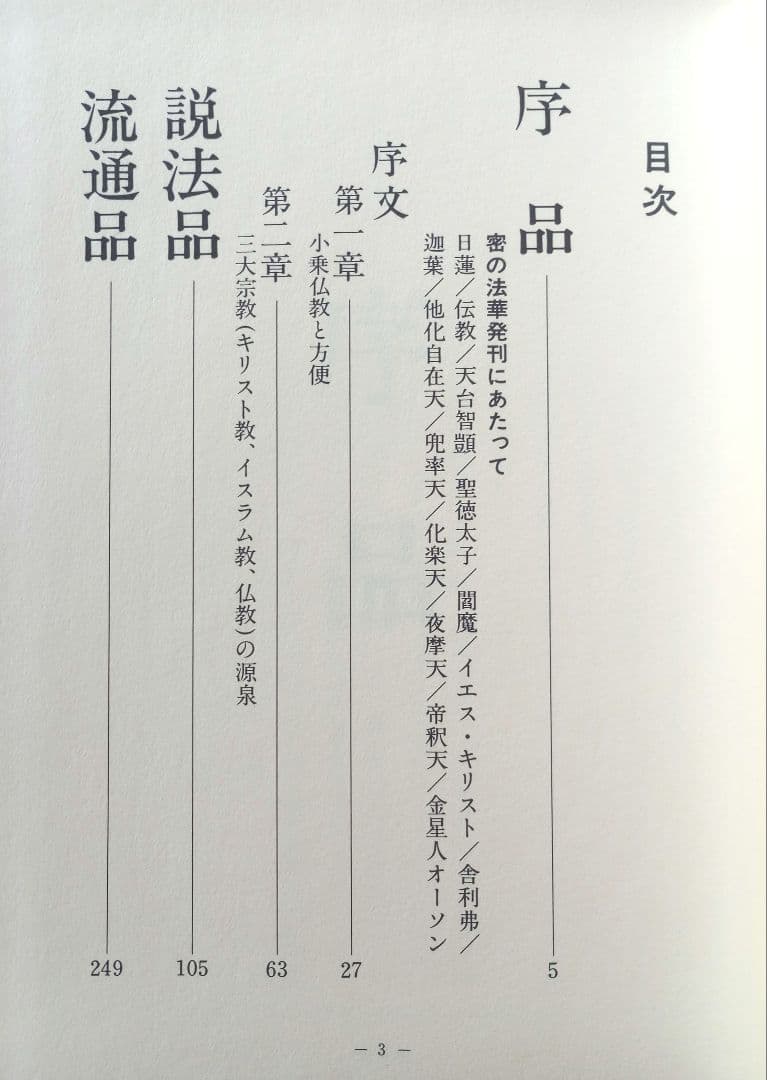 目次
序品 5
密の法華発刊にあたって
日蓮／伝教／天台智顗／聖徳太子／閻魔／イエス・キリスト／舎利弗／
迦葉／他化自在天／兜率天／化楽天／夜摩天／帝釈天／金星人オーソン
序文
第一章 27
小乗仏教と方便
第二章 63
三大宗教(キリスト教、イスラム教、仏教)の源泉
説法品 105
流通品 249
― 3 ―